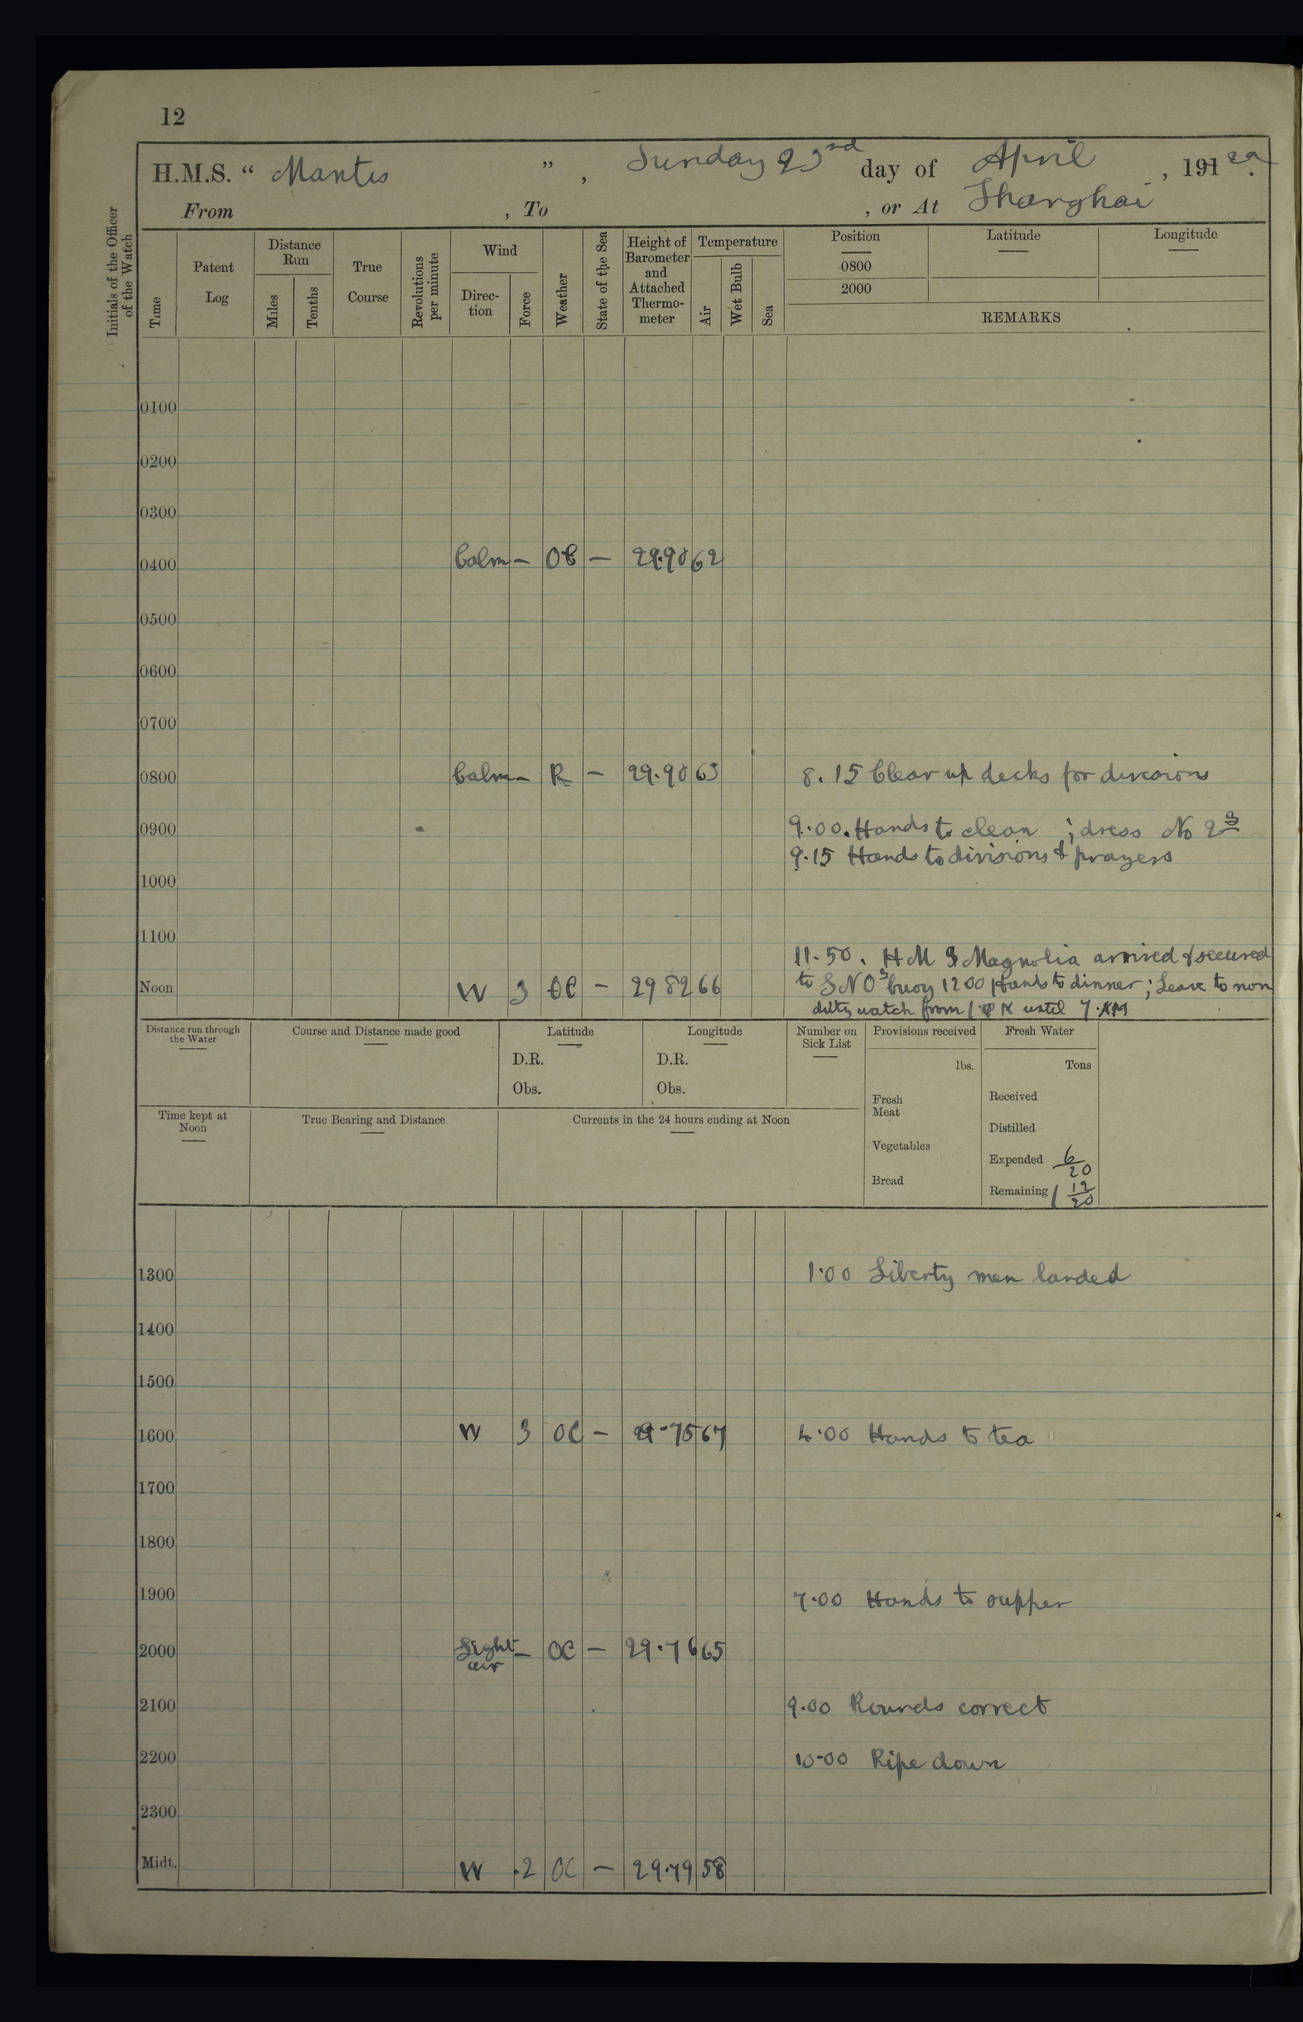 12
H.M.S. “ Mantis ” , Sunday 23rd day of April , 191 22.
From , To , or At Shanghai
Initials of the Officer of the Watch
Time
Patent Log
Distance Run
Miles
Tenths
True Course
Revolutions per minute
Wind
Direc-tion
Force
Weather
State of the Sea
Height of Barometer and Attached Thermo-meter
Temperature
Air
Wet Bulb
Sea
Position Latitude Longitude
0800
2000
REMARKS
0100
0200
0300
0400 Calm – OC – 29.90 62
0500
0600
0700
0800 Calm – R – 29.90 63 8.15 Clear up decks for divisions
0900 9.00. Hands to clean ; dress No 2s
9.15 Hands to divisions & prayers
1000
1100
11.50. H M S Magnolia arrived & secured
Noon W 3 OC – 29 82 66 to S N O's buoy 1200 Hands to dinner ; Leave to non
duty watch from 1 PM until 7 AM
Distance run through the Water
Course and Distance made good
Latitude
D.R.
Obs.
Longitude
D.R.
Obs.
Number on Sick List
Provisions received
lbs.
Fresh Meat
Vegetables
Bread
Fresh Water
Tons
Received
Distilled
Expended 6/20
Remaining 1 12/20
Time kept at Noon
True Bearing and Distance
Currents in the 24 hours ending at Noon
1300 1.00 Liberty men landed
1400
1500
1600 W 3 OC – 29.75 67 4.00 Hands to tea
1700
1800
1900 7.00 Hands to supper
2000 Light air – OC – 29.76 65
2100 9.00 Rounds correct
2200 10.00 Pipe down
2300
Midt. W .2 OC – 29.79 58